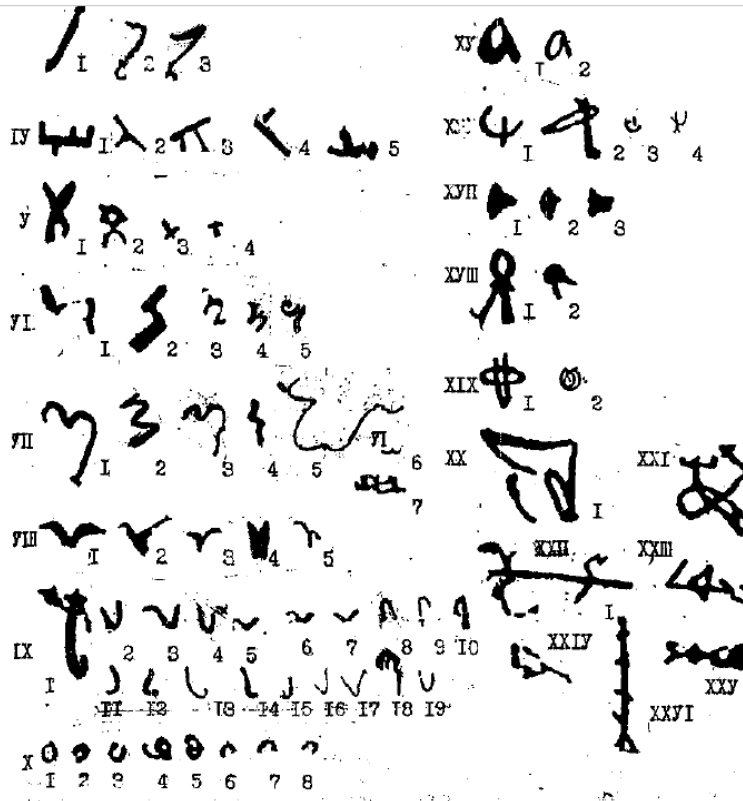 I 2 3
IУ I 2 3 4 5
У I 2 3 4
УI I 2 3 4 5
УII I 2 3 4 5 6
7
УIII I 2 3 4 5
IX I 2 3 4 5 6 7 8 9 I0
II I2 I3 I4 I5 I6 I7 I8 I9
X I 2 3 4 5 6 7 8
XУ I 2
I 2 3 4
XУII I 2 3
XУIII I 2
XIX I 2
XX I
XXI
XXII I
XXIII
XXIУ
XXУ
XXУI